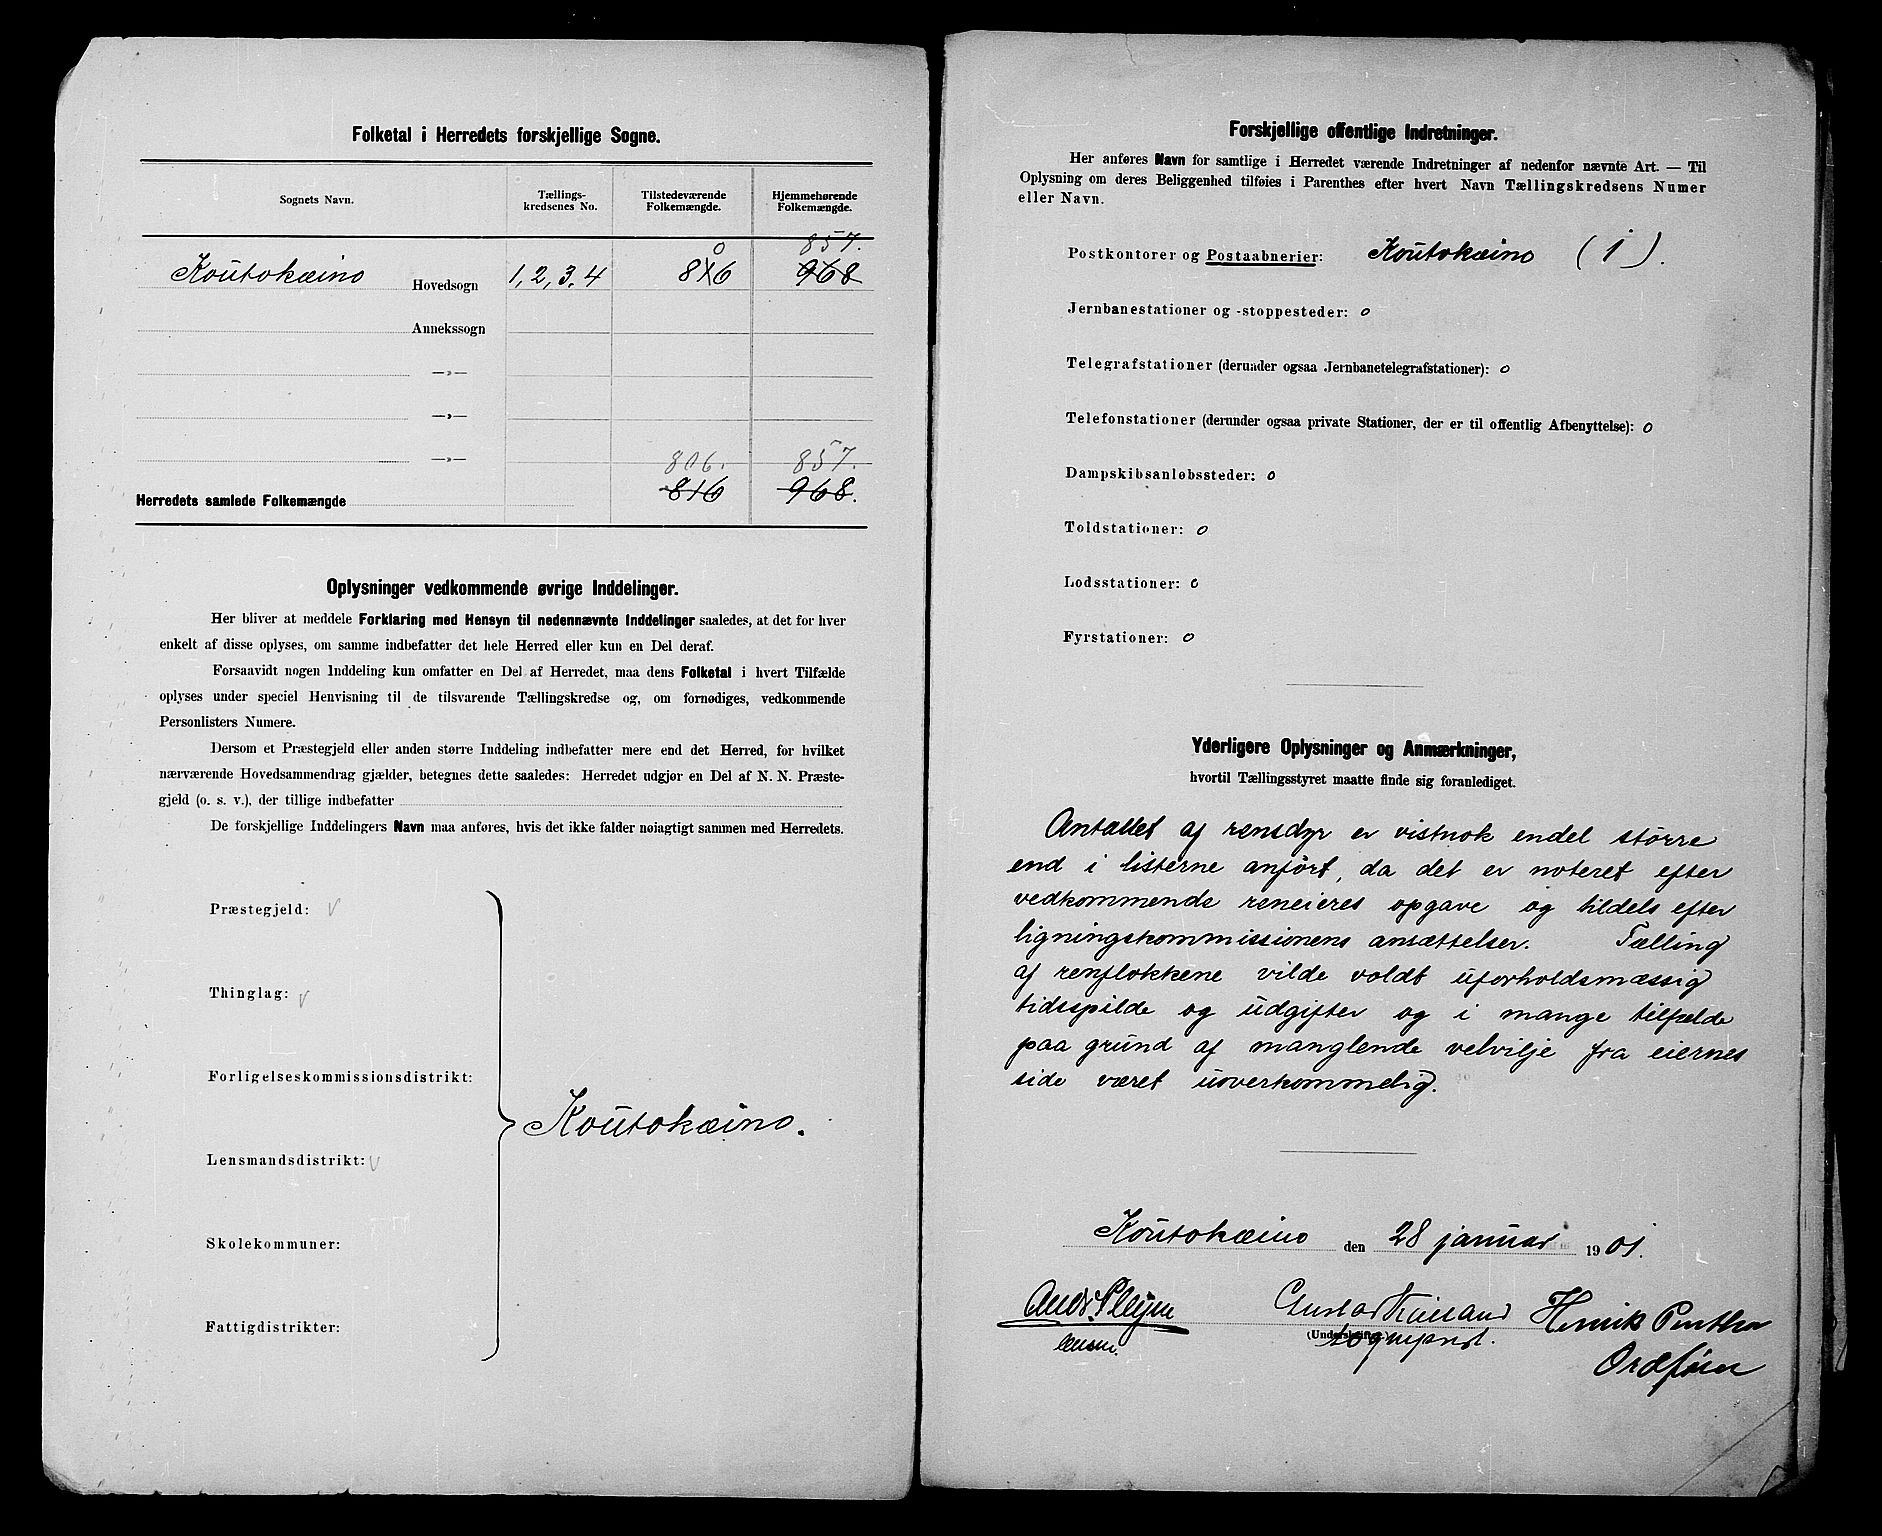 Folketal i Herredets forskjellige Sogne.
Sognets Navn.
Tællings-
kredsenes No.
Tilstedeværende
Folkemængde.
Hjemmehørende
Folkemængde.
0 857.
Koutokæino Hovedsogn 1, 2, 3, 4 816 968
Annekssogn
—„—
—„—
—„—
806. 857.
Herredets samlede Folkemængde 816 968.
Oplysninger vedkommende øvrige Inddelinger.
Her bliver at meddele Forklaring med Hensyn til nedennævnte Inddelinger saaledes, at det for hver
enkelt af disse oplyses, om samme indbefatter det hele Herred eller kun en Del deraf.
Forsaavidt nogen Inddeling kun omfatter en Del af Herredet, maa dens Folketal i hvert Tilfælde
oplyses under speciel Henvisning til de tilsvarende Tællingskredse og, om fornødiges, vedkommende
Personlisters Numere.
Dersom et Præstegjeld eller anden større Inddeling indbefatter mere end det Herred, for hvilket
nærværende Hovedsammendrag gjælder, betegnes dette saaledes: Herredet udgjør en Del af N. N. Præste-
gjeld (o. s. v.), der tillige indbefatter
De forskjellige Inddelingers Navn maa anføres, hvis det ikke falder nøiagtigt sammen med Herredets.
Præstegjeld:
Thinglag:
Forligelseskommissionsdistrikt:
Koutokæino.
Lensmandsdistrikt:
Skolekommuner:
Fattigdistrikter:
Forskjellige offentlige Indretninger.
Her anføres Navn for samtlige i Herredet værende Indretninger af nedenfor nævnte Art. — Til
Oplysning om deres Beliggenhed tilføies i Parenthes efter hvert Navn Tællingskredsens Numer
eller Navn.
Postkontorer og Postaabnerier: Koutokæino (1).
Jernbanestationer og -stoppesteder: 0
Telegrafstationer (derunder ogsaa Jernbanetelegrafstationer): 0
Telefonstationer (derunder ogsaa private Stationer, der er til offentlig Afbenyttelse): 0
Dampskibsanløbssteder: 0
Toldstationer: 0
Lodsstationer: 0
Fyrstationer: 0
Yderligere Oplysninger og Anmærkninger,
hvortil Tællingsstyret maatte finde sig foranlediget.
Antallet af rensdyr er vistnok endel større
end i listerne anført, da det er noteret efter
vedkommende reneieres opgave og tildels efter
ligningskommissionens ansættelser. Tælling
af renflokkene vilde voldt uforholdsmæssig
tidsspilde og udgifter og i mange tilfælde
paa grund af manglende velvilje fra eiernes
side været uoverkommelig.
Koutokæino den 28 januar 1901.
Gustav Kielland Henrik
(Underskrifter)
Ordfører